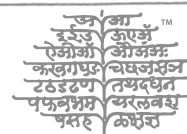 अ आ TM
इ ई उ ऊ ए ऐ
ऐ ओ औ अं अः
क ख ग घ ङ च छ ज झ ञ
ट ठ ड ढ ण त थ द ध न
प फ ब भ म य र ल व श
ष स ह ळ क्ष ज्ञ